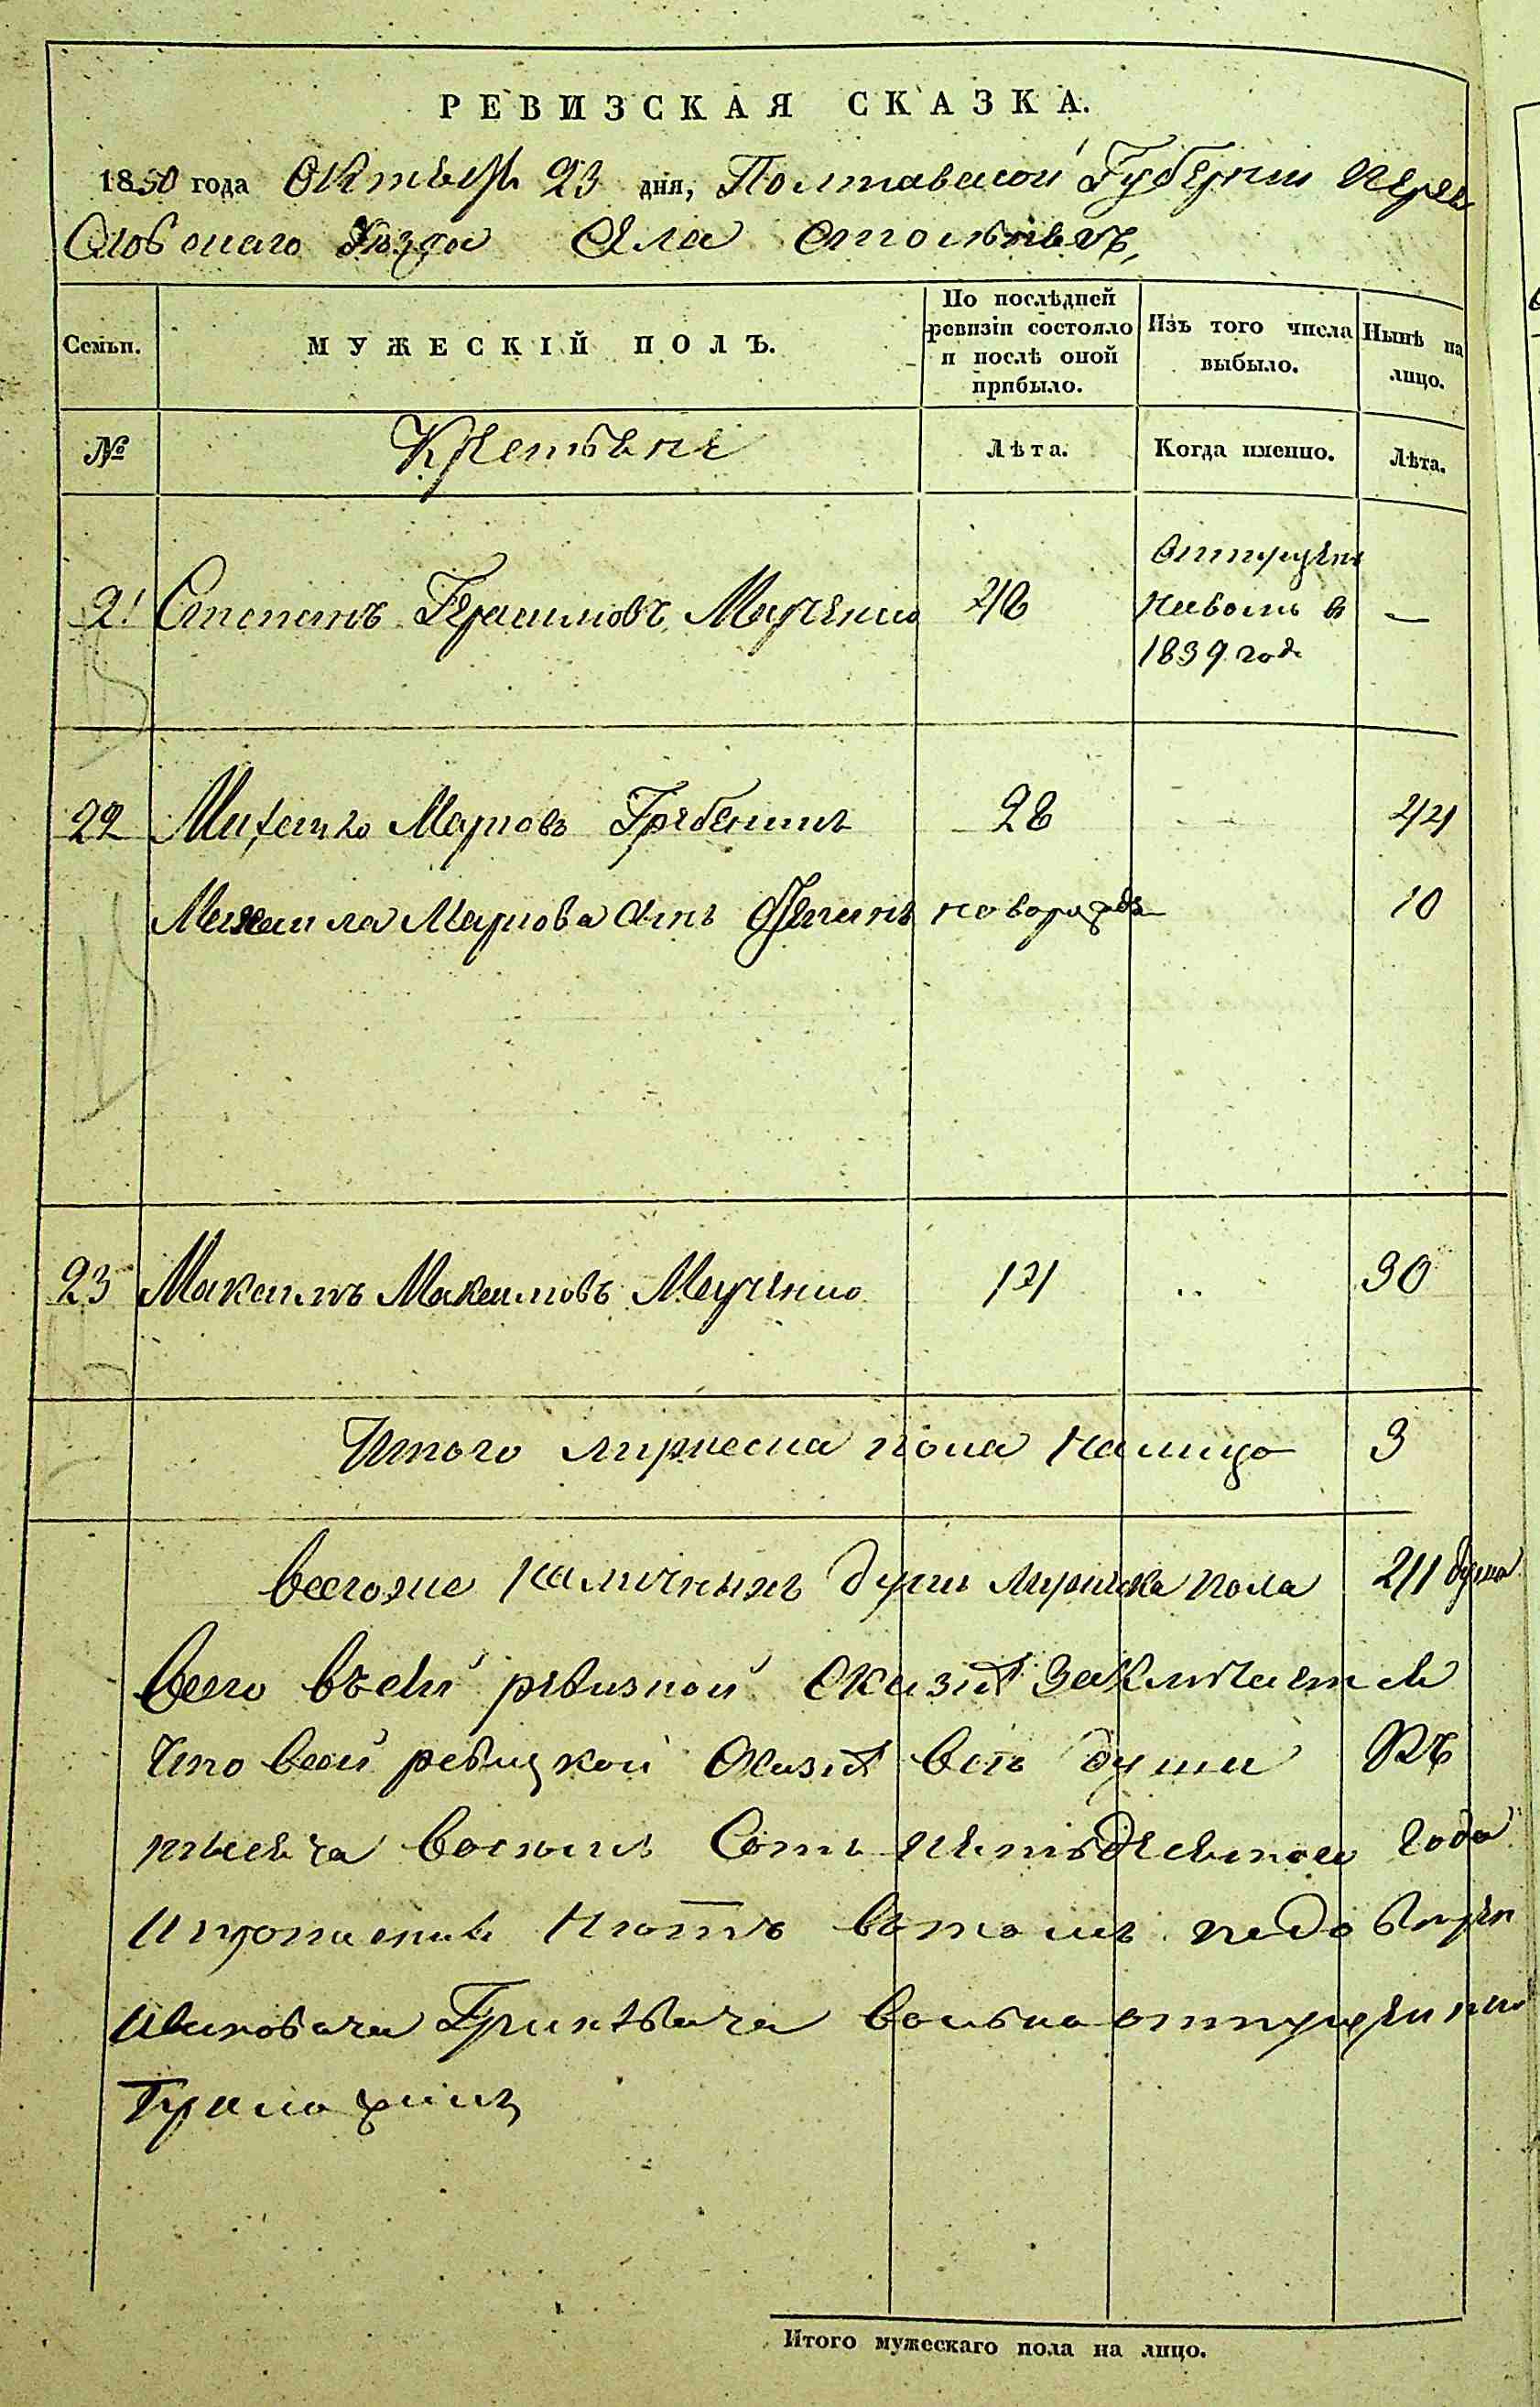 РЕВИЗСКАЯ СКАЗКА.
1850 года Октября 23 дня, Полтавской Губерніи Перея
Словскаго Уезда Села Стовпяхъ,
Семьи.
МУЖЕСКІЙ ПОЛЪ.
По послѣдней ревизіи состояло и послѣ оной прибыло.
Изъ того числа выбыло.
Нынѣ на лицо.
№
Крестьяне
Лѣта.
Когда именно.
Лѣта.
21 Степанъ Герасимовъ 46 Отпущенъ
наволю в —
1839 годе
22 Михайло Марковъ Гребенникъ 28 44
Михаила Маркова Сынъ новорожде 10
23 Максимъ Максимовъ 14 30
Итого мужеска пола налицо 3
Всегоже наличныхъ душъ мужеска пола 41 душа
Всего въсей ревизкой Сказке Заключается
Что всей ревизкой Сказке все души
тысяча восемь Сотъ пятьдесятого года
вътомъ
Ивановича вольно
Итого мужескаго пола на лицо.